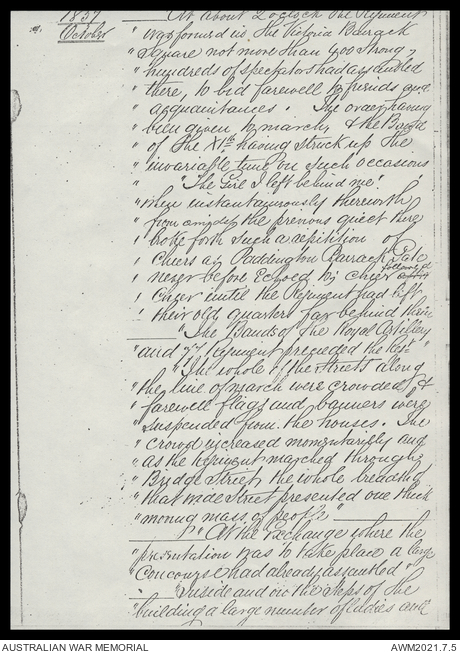 1857 "At about 2 o'clock the Regiment
October "was formed in the Victoria Barrack
"square not more than 900 strong,
"hundreds of spectators had assembled
"there, to bid farewell to friends and
"acquaintances. The order having
"been given to march, & the Band
"of the XIth having struck up the
"invariable tune on such occasions
" "The Girl I left behind me"
"when instantaneously therewith
"from amidst the previous quiet there
"broke forth such a repitition of
"cheers as Paddington Barrack Gate
"never before Echoed to; cheer followed
"cheer until the Regiment had left
"their old quarters far behind them
"The Bands of the Royal Artillery
"and 77 Regiment preceded the Regt."
"The whole of the streets along
"the line of march were crowded, &
"farewell flags and banners were
"suspended from the houses. The
"crowd increased momentarily and
"as the Regiment marched through
"Bridge Street, the whole breadth of
"that wide Street presented one thick
"moving mass of people"
"At the Exchange where the
"presentation was to take place a large
"Concourse had already assembled"
"Inside and on the steps of the
"building a large number of ladies and
AUSTRALIAN WAR MEMORIAL AWM2021.7.5